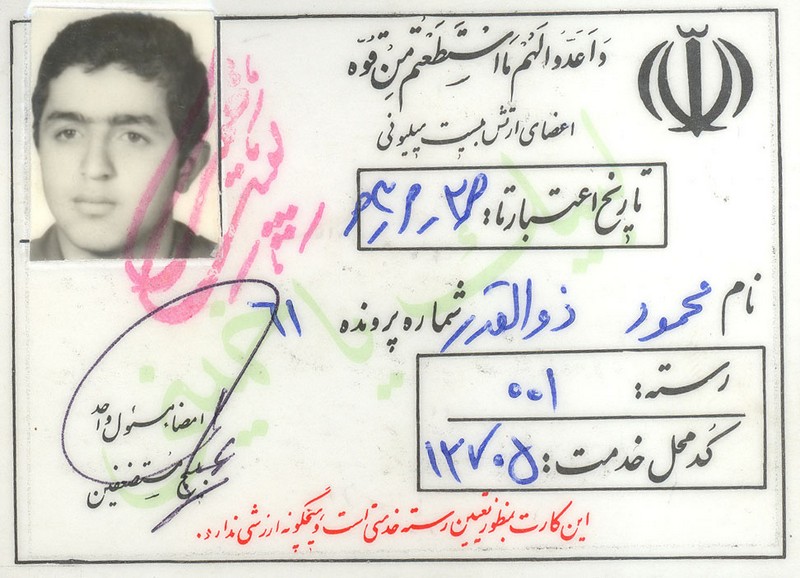 وَاَعِدُّوا لَهُم مَا اسْتَطَعْتُم مِن قُوَّه
اعضای ارتش بیست میلیونی
تاریخ اعتبار تا:
نام محمود ذوالقدر شماره پرونده ۶۱
رسته: ۰۰۱
کد محل خدمت: ۱۳۷۰۵
امضا مسئول واحد
بسیج مستضعفین
لبیک یا خمینی
این کارت بمنظور تعیین رسته خدمتی است و هیچگونه ارزشی ندارد.